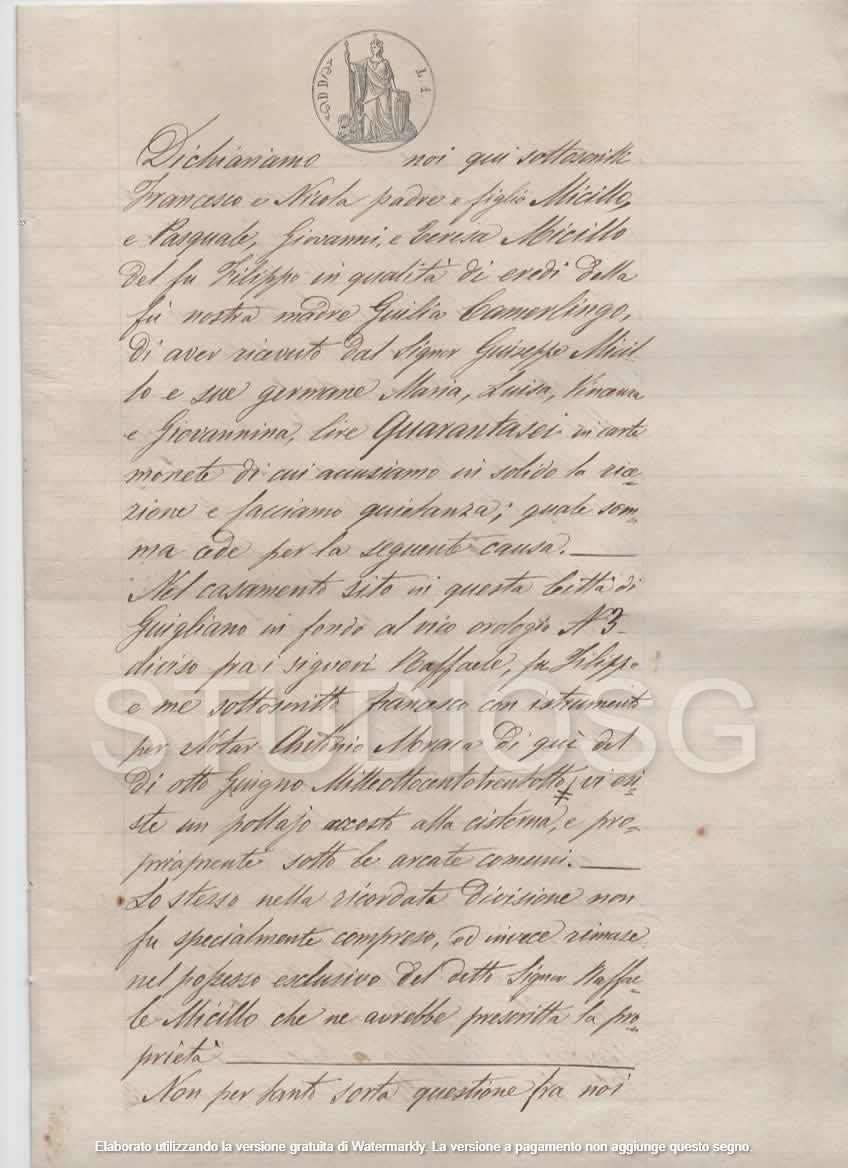 L. 1
Dichiariamo noi qui sottoscritti
Francesco e Nicola padre e figlio Micillo,
e Pasquale, Giovanni, e Teresa Micillo
del fu Filippo in qualità di eredi della
fù nostra madre Giulia Camerlingo,
di aver ricevuto dal Signor Giuseppe Micil
lo e sue germane Maria, Luisa, Vincenza
e Giovannina, lire Quarantasei in carte
monete di cui accusiamo in solido la rice=
zione e facciamo quietanza; quale som=
ma cede per la seguente causa.
Nel casamento sito in questa Città di
Giugliano in fondo al vico orologio N 3
diviso fra i signori Raffaele, fu Filippo
e me sottoscritto Francesco con istrumento
per Notar Antonio di quì del
dì otto Giugno Milleottocentotrentotto, vi esi=
ste un pollajo accosto alla cisterna, e pro=
priamente sotto le arcate comuni.
Lo stesso nella ricordata divisione non
fu specialmente compreso, ed invece rimase
nel possesso esclusivo del detto Signor Raffae=
le Micillo che ne avrebbe prescritta la pro=
prietà
Non per tanto sorta questione fra noi
STUDIOSG
Elaborato utilizzando la versione gratuita di Watermarkly. La versione a pagamento non aggiunge questo segno.